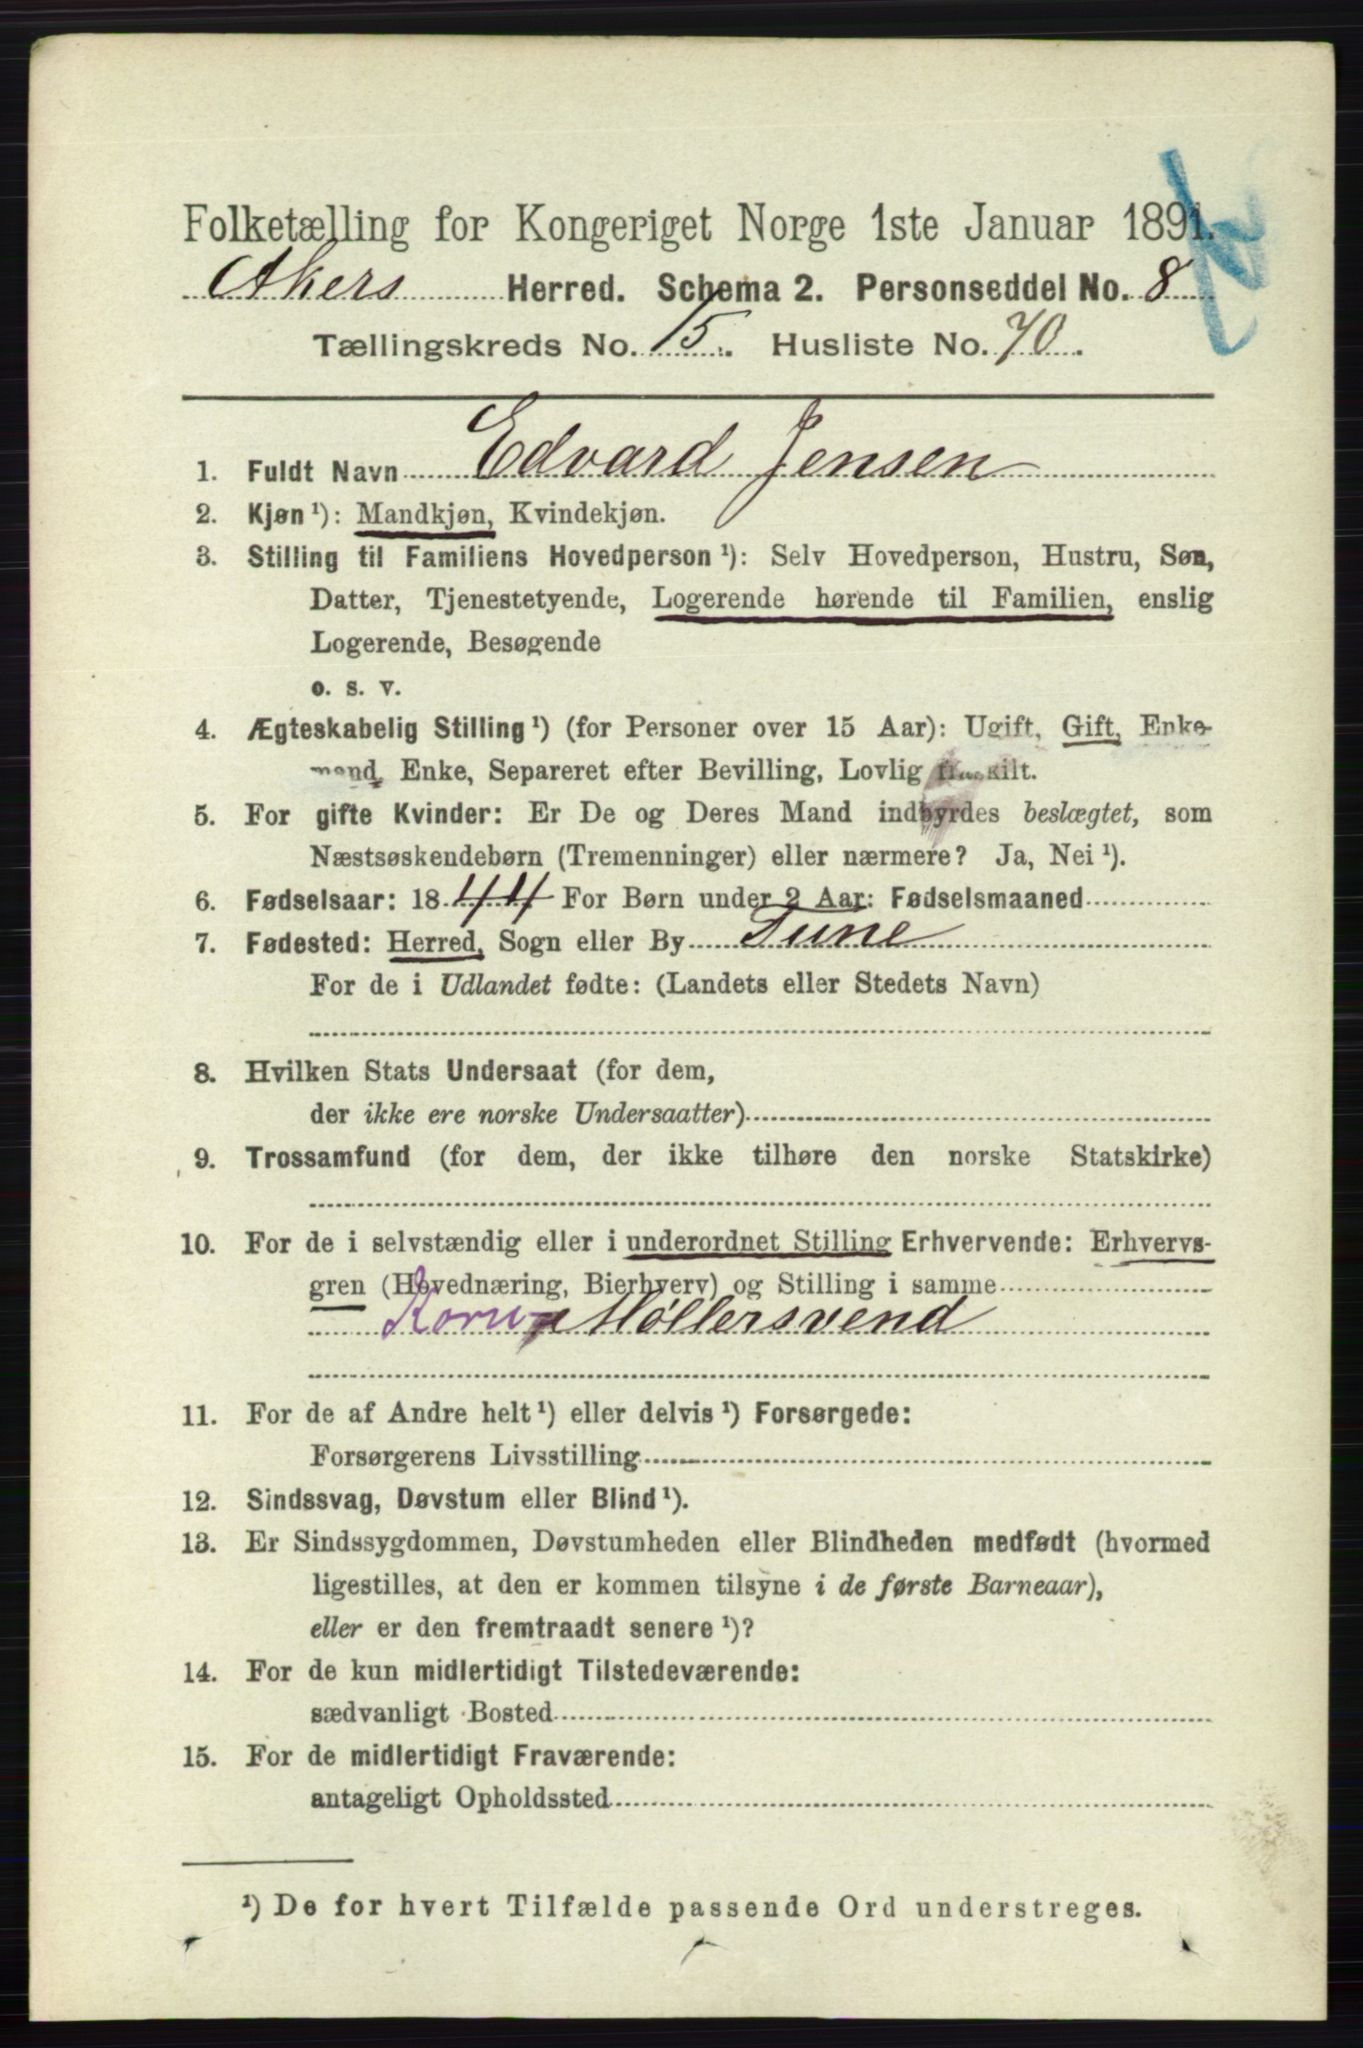 Folketælling for Kongeriget Norge 1ste Januar 1891.
Akers Herred. Schema 2. Personseddel No. 8
Tællingskreds No. 15. Husliste No. 70.
1. Fuldt Navn Edvard Jensen
2. Kjøn ¹): Mandkjøn, Kvindekjøn.
3. Stilling til Familiens Hovedperson ¹): Selv Hovedperson, Hustru, Søn,
Datter, Tjenestetyende, Logerende hørende til Familien, enslig
Logerende, Besøgende
o. s. v.
4. Ægteskabelig Stilling ¹) (for Personer over 15 Aar): Ugift, Gift, Enke-
mand, Enke, Separeret efter Bevilling, Lovlig fraskilt.
5. For gifte Kvinder: Er De og Deres Mand indbyrdes beslægtet, som
Næstsøskendebørn (Tremenninger) eller nærmere? Ja, Nei ¹).
6. Fødselsaar: 1844 For Børn under 2 Aar: Fødselsmaaned
7. Fødested: Herred, Sogn eller By Tune
For de i Udlandet fødte: (Landets eller Stedets Navn)
8. Hvilken Stats Undersaat (for dem,
der ikke ere norske Undersaatter)
9. Trossamfund (for dem, der ikke tilhøre den norske Statskirke)
10. For de i selvstændig eller i underordnet Stilling Erhvervende: Erhvervs-
gren (Hovednæring, Bierhverv) og Stilling i samme
Korn-Møllersvend
11. For de af Andre helt ¹) eller delvis ¹) Forsørgede:
Forsørgerens Livsstilling
12. Sindssvag, Døvstum eller Blind ¹).
13. Er Sindssygdommen, Døvstumheden eller Blindheden medfødt (hvormed
ligestilles, at den er kommen tilsyne i de første Barneaar),
eller er den fremtraadt senere ¹)?
14. For de kun midlertidigt Tilstedeværende:
sædvanligt Bosted
15. For de midlertidigt Fraværende:
antageligt Opholdssted
¹) De for hvert Tilfælde passende Ord understreges.